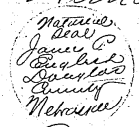 Notarial
Seal
James C.
English
Douglas
County
Nebraska